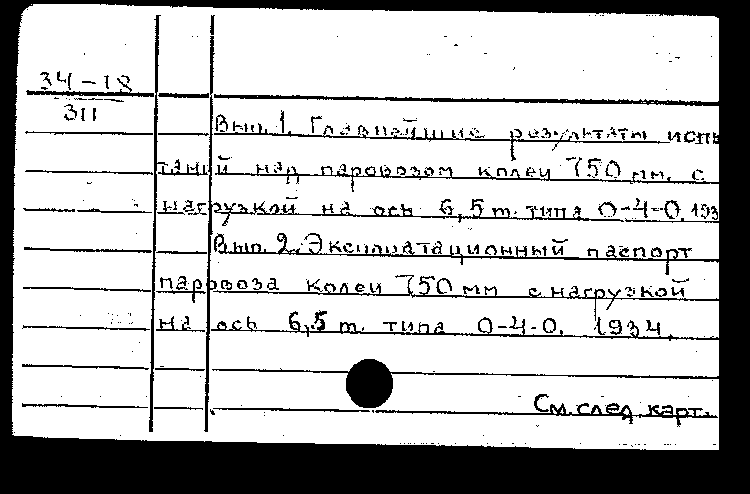 34-18
311
Вып. 1. Главнейшие результаты испы
таний над паровозом колеи 750 мм. с
нагрузкой на ось 6,5 т. типа 0-4-0. 193
Вып. 2. Эксплуатационный паспорт
паровоза колеи 750 мм с нагрузкой
на ось 6,5 т. типа 0-4-0. 1934.
См. след. карт.